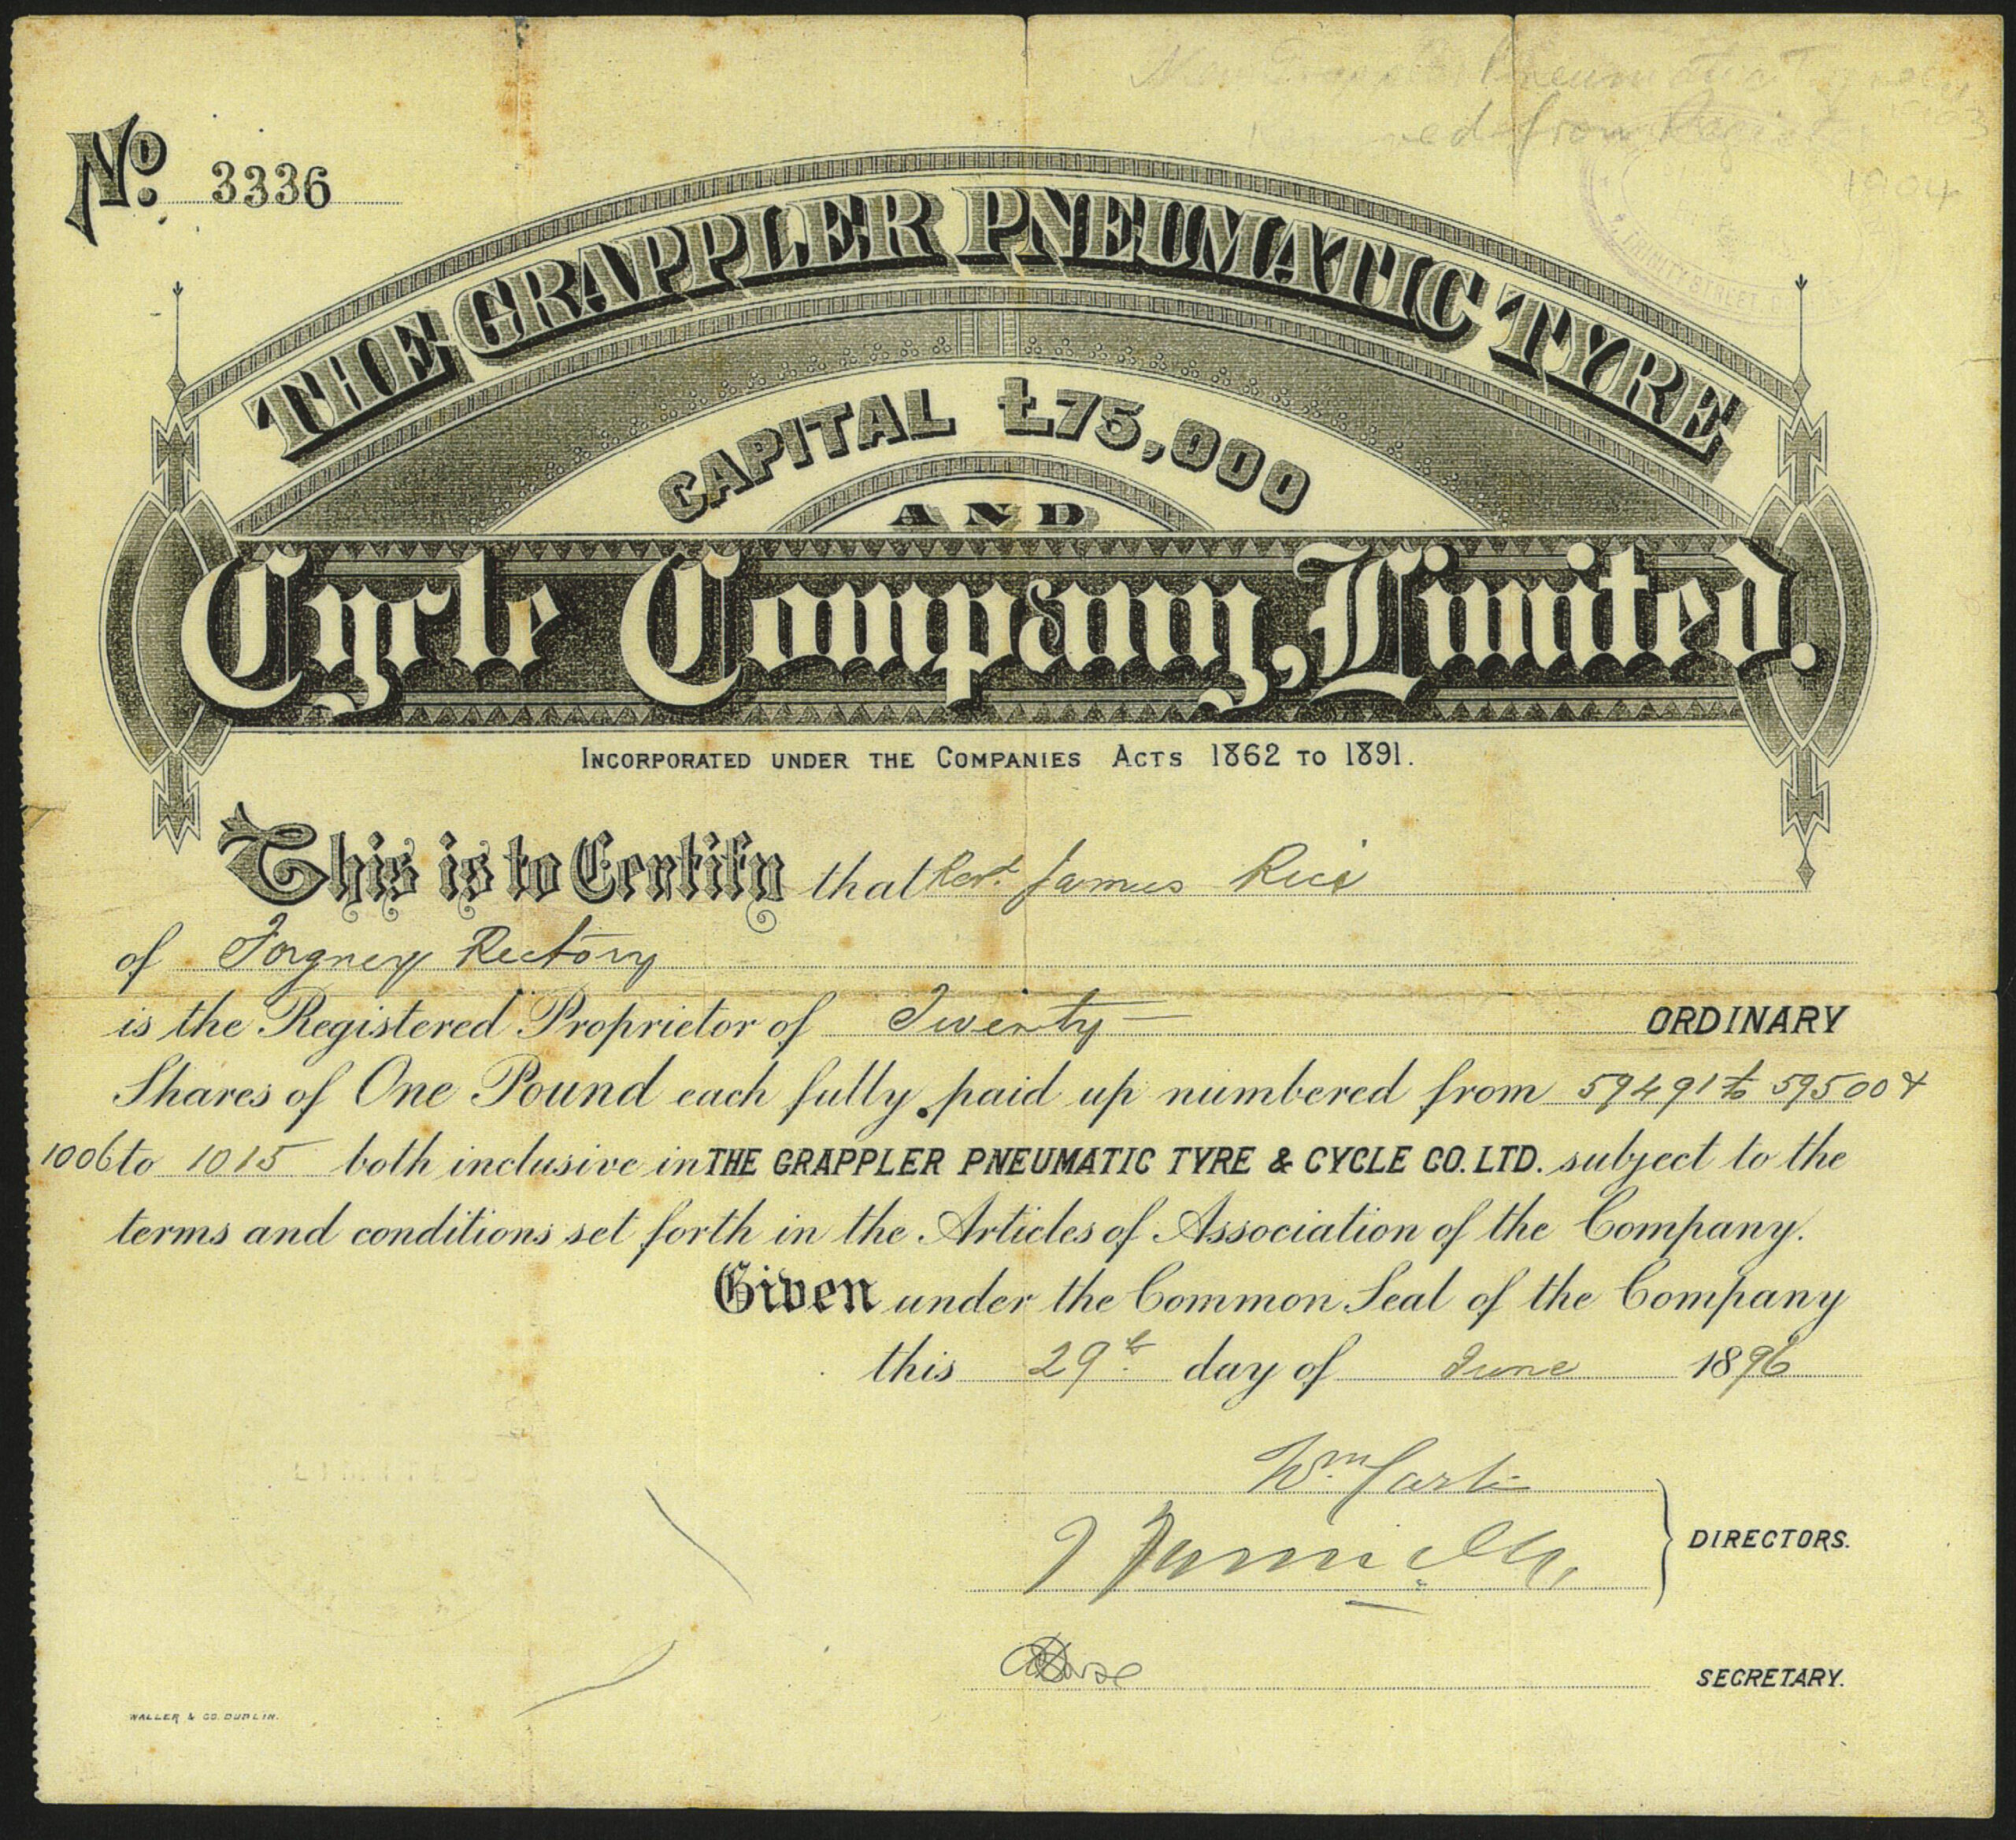 Pneumatic
from
1904
No. 3336
TRINITY STREET
THE GRAPPLER PNEUMATIC TYRE
CAPITAL £75,000
AND
Cycle Company, Limited.
INCORPORATED UNDER THE COMPANIES ACTS 1862 TO 1891.
This is to Certify that Revd. James Rice
of Forgney Rectory
is the Registered Proprietor of Twenty — ORDINARY
Shares of One Pound each fully paid up numbered from 59491 to 59500 &
1006 to 1015 both inclusive in THE GRAPPLER PNEUMATIC TYRE & CYCLE CO. LTD. subject to the
terms and conditions set forth in the Articles of Association of the Company.
Given under the Common Seal of the Company
this 29th day of June 1896
Wm
DIRECTORS.
SECRETARY.
WALLER & CO. DUBLIN.